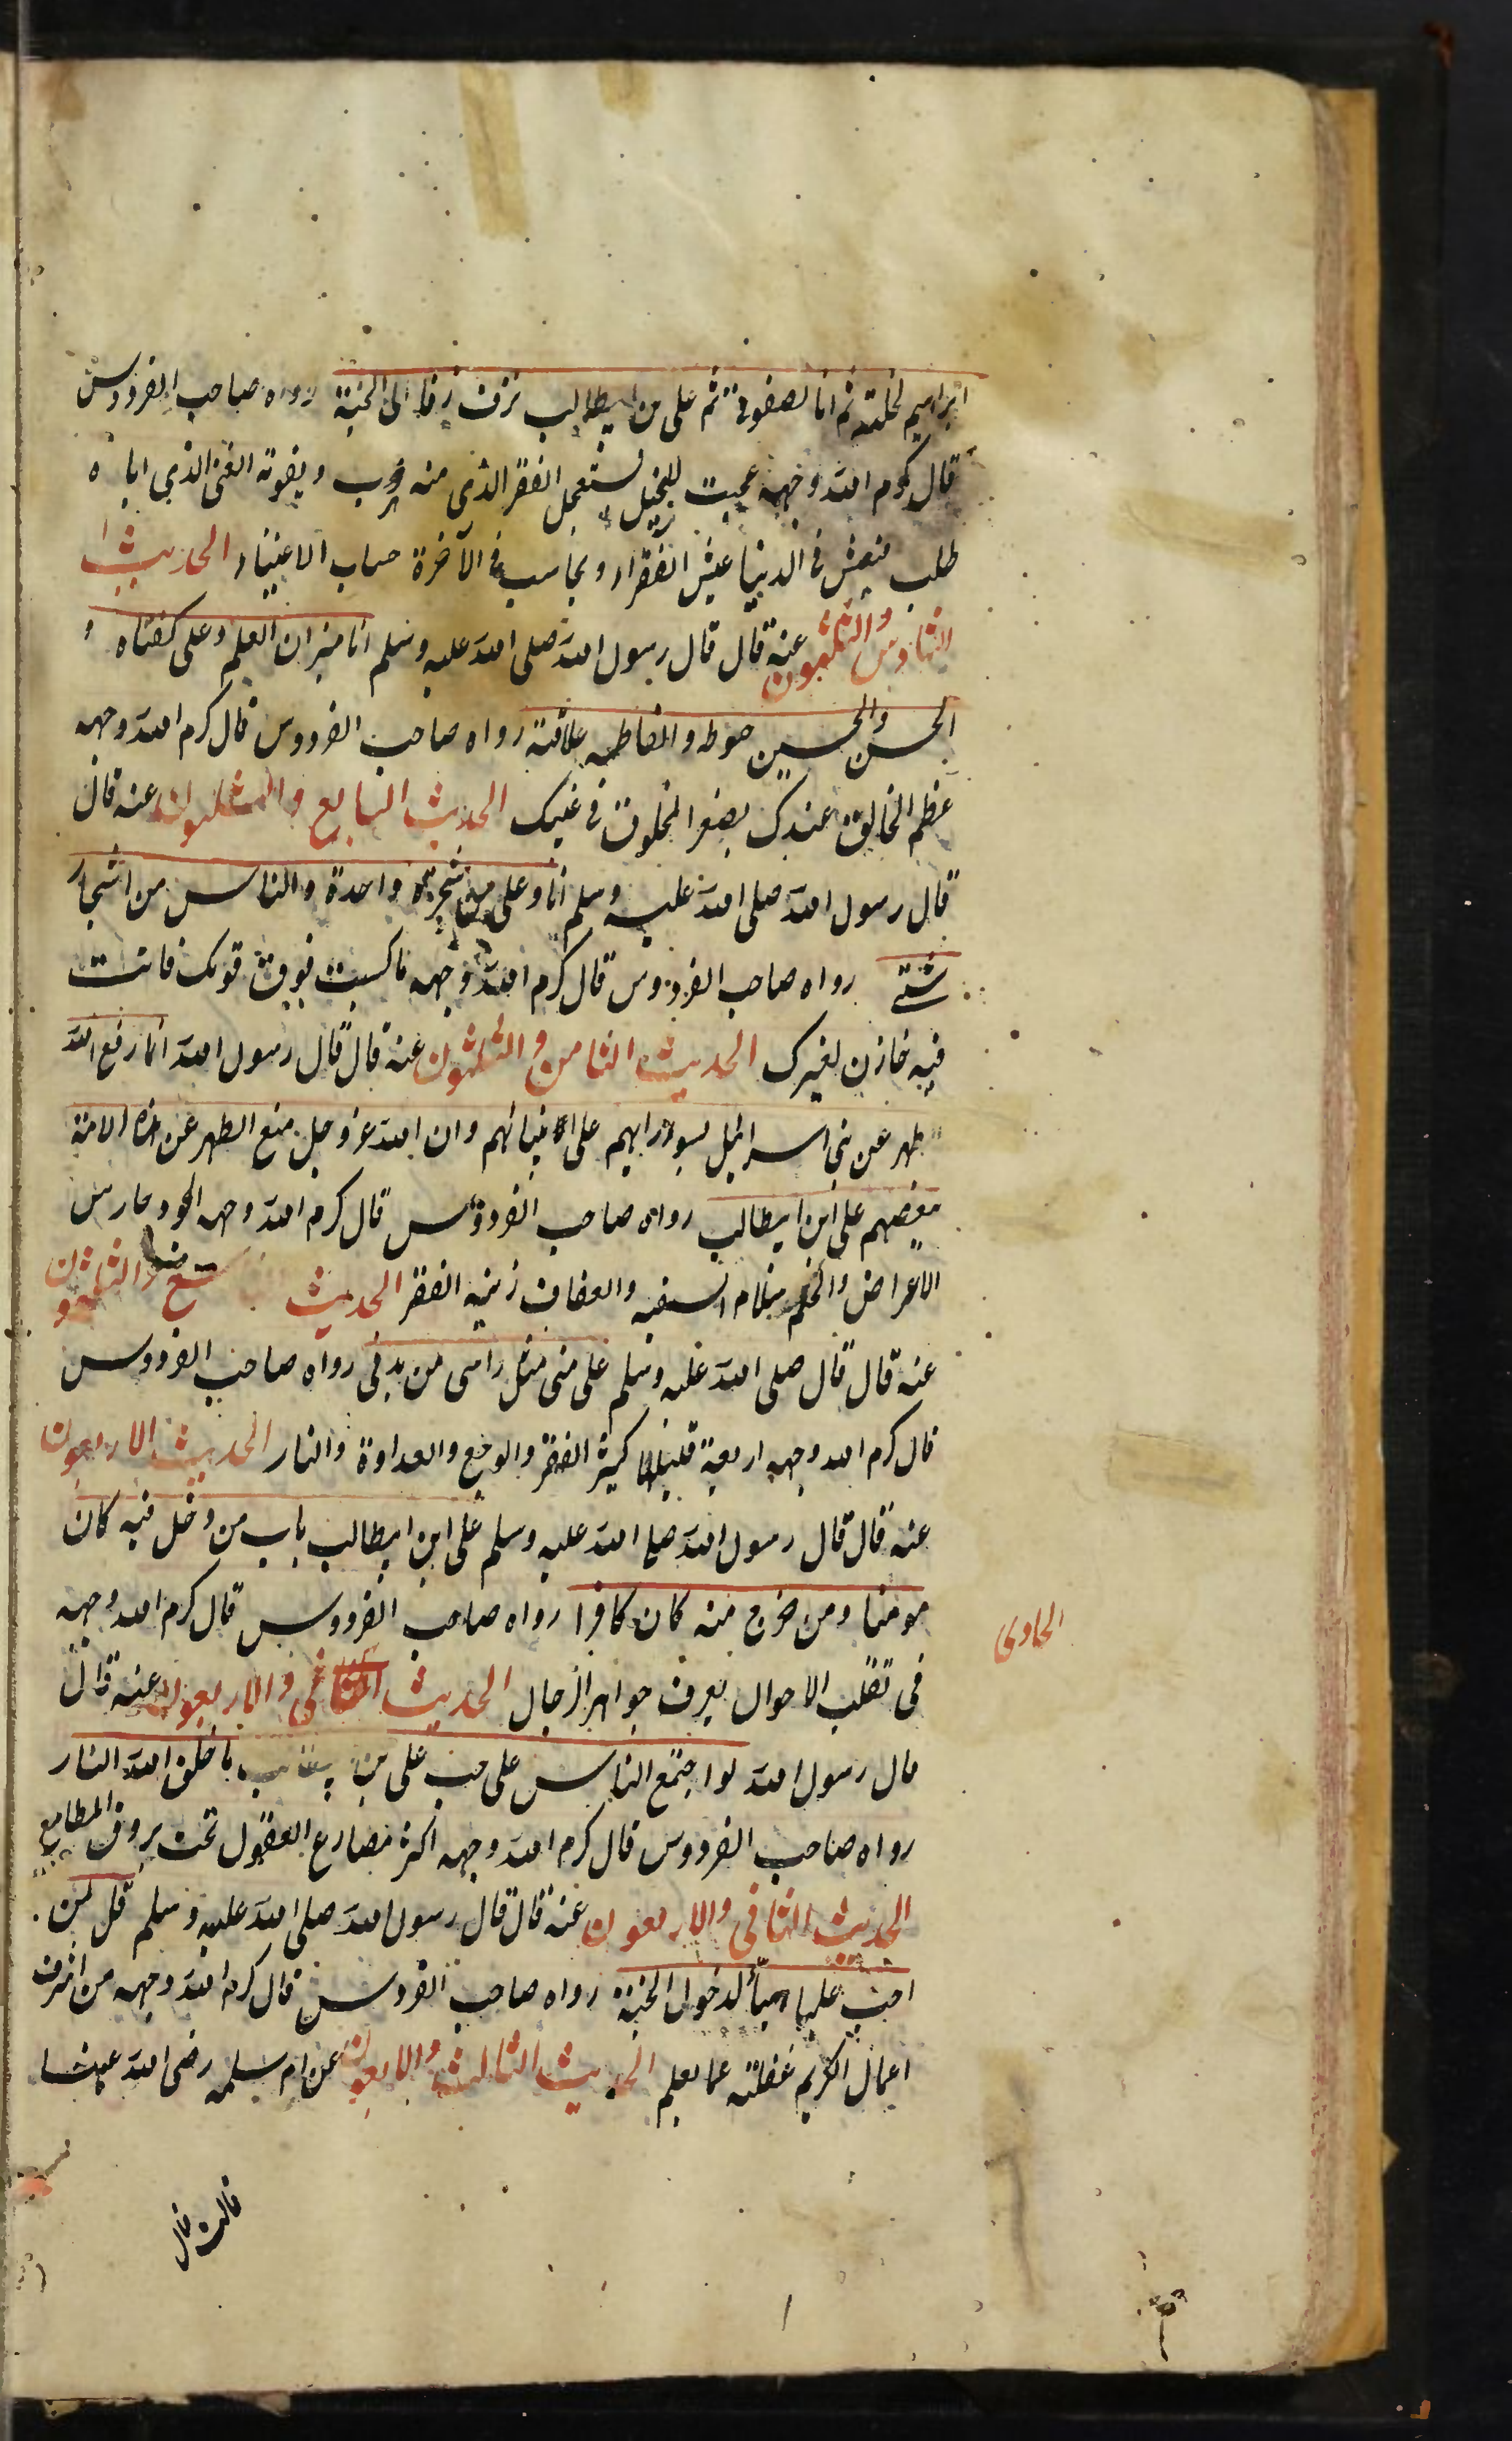 ابراهيم لخلته ثم انا لصفوتى ثم على بن ابيطالب يزف زفا الى الجنة رواه صاحب الفردوس
قال كرم الله وجهه عجبت للبخيل يستعجل الفقر الذى منه هرب ويفوته الغنى الذى اياه
طلب فيعيش فى الدنيا عيش الفقراء ويحاسب فى الآخرة حساب الاغنياء الحديث
السادس والثلثون عنه قال قال رسول الله صلى الله عليه وسلم انا ميزان العلم وعلى كفتاه و
الحسن والحسين خيوطه والفاطمه علاقته رواه صاحب الفردوس قال كرم الله وجهه
عظم الخالق عندك يصغر المخلوق فى عينك الحديث السابع والثلثون عنه قال
قال رسول الله صلى الله عليه وسلم انا وعلى من شجرة واحدة والناس من اشجار
شتى رواه صاحب الفردوس قال كرم الله وجهه ما كسبت فوق قوتك فانت
فيه خازن لغيرك الحديث الثامن والثلثون عنه قال قال رسول الله انما رفع الله
طهر عن بنى اسرائيل بسوء رايهم على انبيائهم وان الله عز وجل منع الطهر عن هذه الامة
ببغضهم على ابن ابيطالب رواه صاحب الفردوس قال كرم الله وجهه الجود حارس
الاعراض والحلم فدام السفيه والعفاف زينة الفقر الحديث التاسع والثلثون
عنه قال قال صلى الله عليه وسلم على منى مثل راسى من بدنى رواه صاحب الفردوس
قال كرم الله وجهه اربعة قليلها كثير الفقر والوجع والعداوة والنار الحديث الاربعون
عنه قال قال رسول الله صلى الله عليه وسلم على ابن ابيطالب باب من دخل فيه كان
مومنا ومن خرج منه كان كافرا رواه صاحب الفردوس قال كرم الله وجهه
الحادى
فى تقلب الاحوال يعرف جواهر الرجال الحديث والاربعون عنه قال
قال رسول الله لو اجتمع الناس على حب على بن ما خلق الله النار
رواه صاحب الفردوس قال كرم الله وجهه اكثر مصارع العقول تحت بروق المطامع
الحديث الثانى والاربعون عنه قال قال رسول الله صلى الله عليه وسلم قل لمن
احب عليا تهيأ لدخول الجنة رواه صاحب الفردوس قال كرم الله وجهه من اشرف
اعمال الكريم غفلته عما يعلم الحديث الثالث والاربعون عن ام سلمه رضى الله عنها
قالت قال